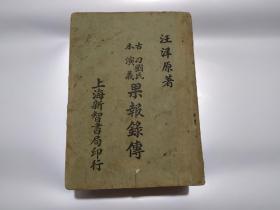 汪洋原著
古本
刁劉氏
演義
果報錄傳
上海新智書局印行